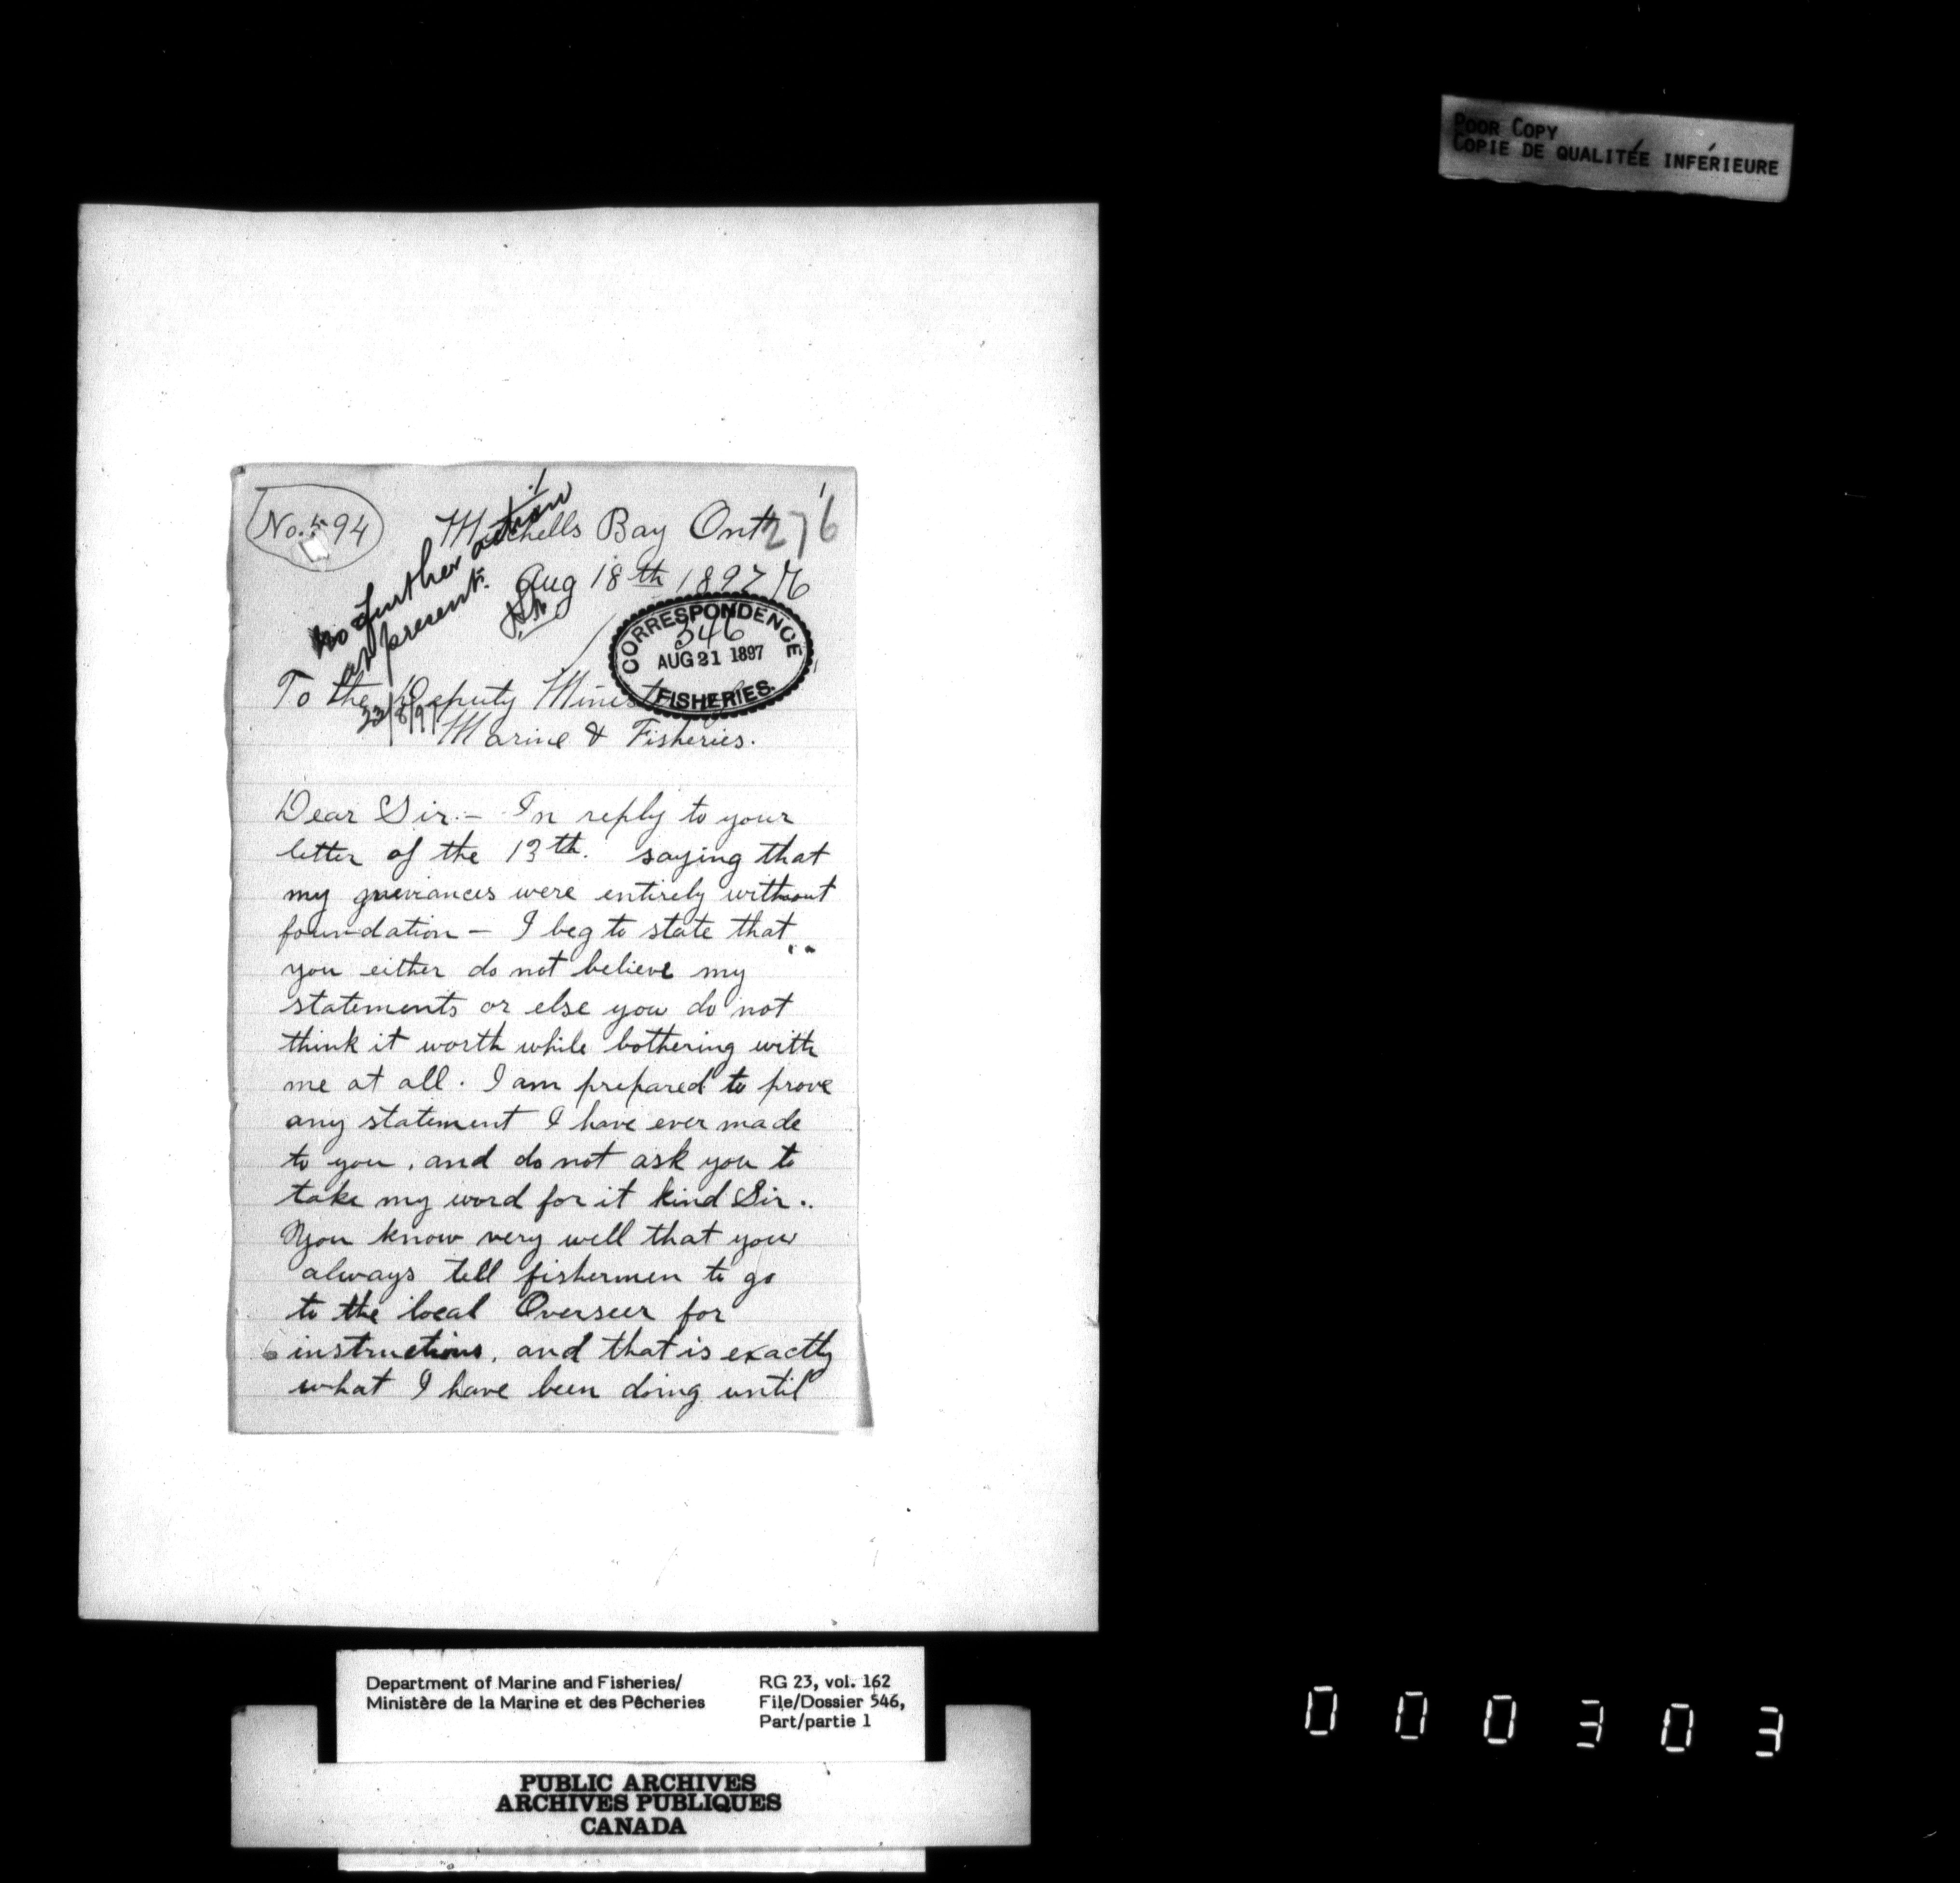 POOR COPY
COPIE DE QUALITÉE INFÉRIEURE
No. 594
Mitchells Bay Ont
276
Aug 18th 1897
76
No further action
at present.
23/8/97
CORRESPONDENCE
346
AUG 21 1897
FISHERIES.
To the Deputy Minist
Marine & Fisheries.
Dear Sir:- In reply to your
letter of the 13th. saying that
my greviances were entirely without
foundation - I beg to state that
you either do not believe my
statements or else you do not
think it worth while bothering with
me at all. I am prepared to prove
any statement I have ever made
to you, and do not ask you to
take my word for it kind Sir..
You know very well that you
always tell fishermen to go
to the local Overseer for
instructions, and that is exactly
what I have been doing until
Department of Marine and Fisheries/
Ministère de la Marine et des Pêcheries
RG 23, vol. 162
File/Dossier 546,
Part/partie 1
PUBLIC ARCHIVES
ARCHIVES PUBLIQUES
CANADA
000303